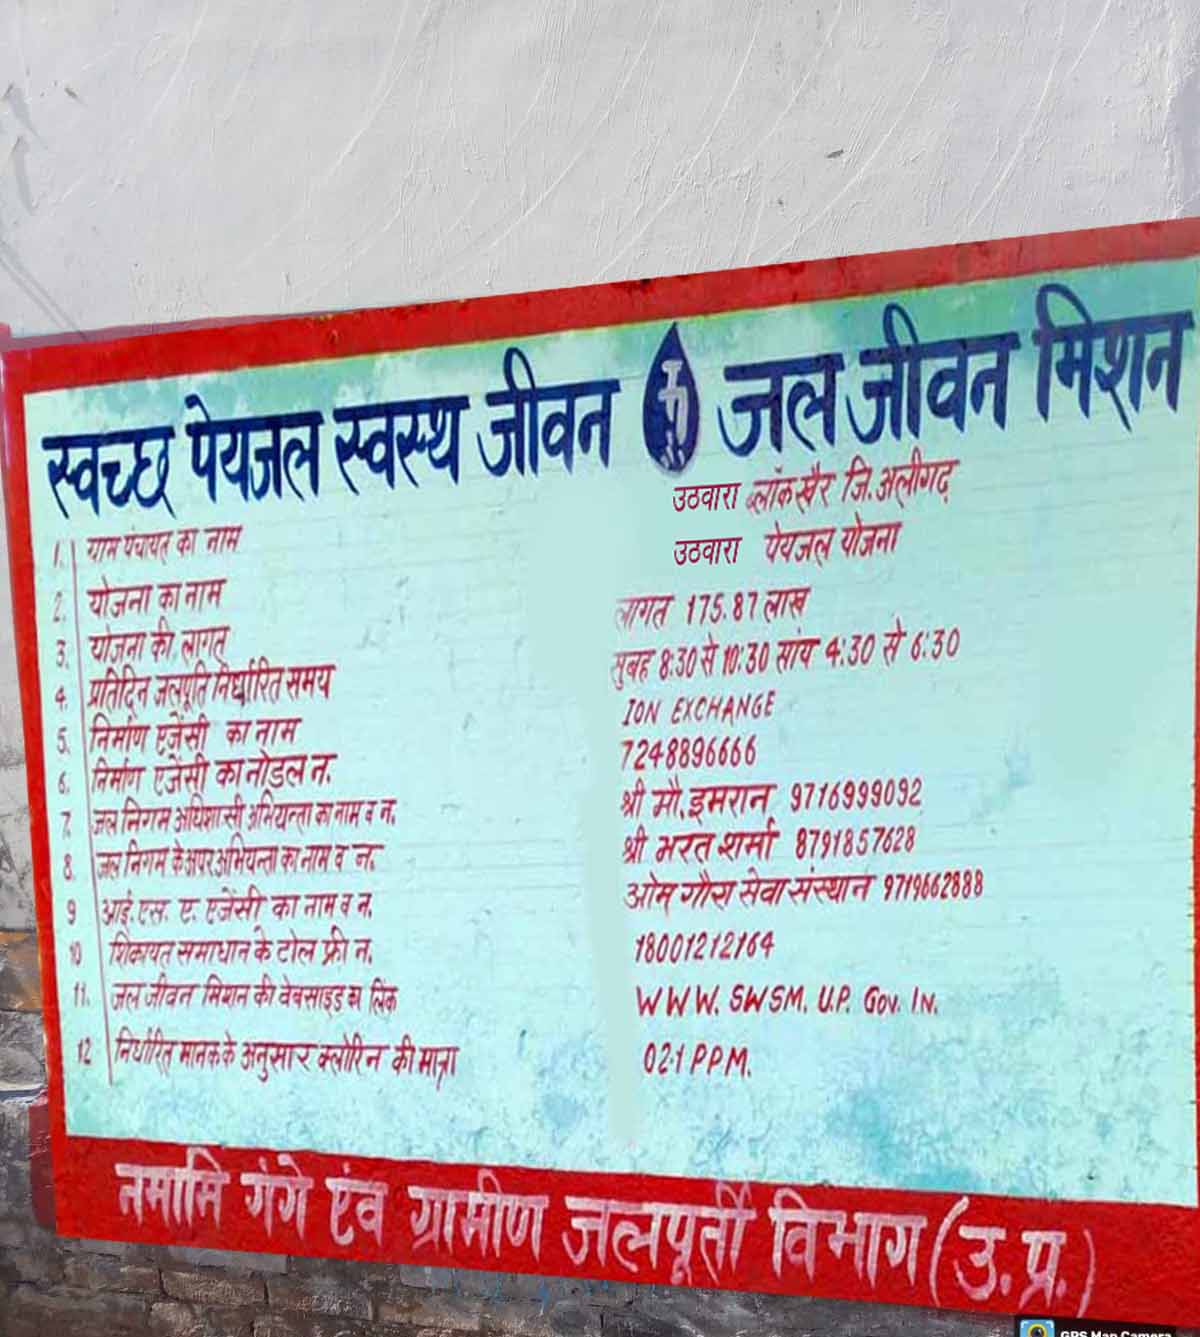 स्वच्छ पेयजल स्वस्थ जीवन जल जीवन मिशन
1. ग्राम पंचायत का नाम उठवारा ब्लॉक खैर जि. अलीगढ़
2. योजना का नाम उठवारा पेयजल योजना
3. योजना की लागत लागत 175.87 लाख
4. प्रतिदिन जलपूति निर्धारित समय सुबह 8:30 से 10:30 सांय 4:30 से 6:30
5. निर्माण एजेंसी का नाम ION EXCHANGE
6. निर्माण एजेंसी का नोडल न. 7248896666
7. जल निगम अधिशासी अभियन्ता का नाम व न. श्री मौ. इमरान 9716999092
8. जल निगम के अपर अभियन्ता का नाम व न. श्री भरत शर्मा 8791857628
9 आई. एस. ए. एजेंसी का नाम व न. ओम गौरा सेवा संस्थान 9719662888
10 शिकायत समाधान के टोल फ्री न. 18001212164
11. जल जीवन मिशन की वेबसाइड का लिंक WWW. SWSM. U.P. Gov. IN.
12 निर्धारित मानक के अनुसार क्लोरिन की मात्रा 02.1 PPM.
नमामि गंगे एंव ग्रामीण जलपूर्ती विभाग (उ. प्र.)
GPS Map Camera